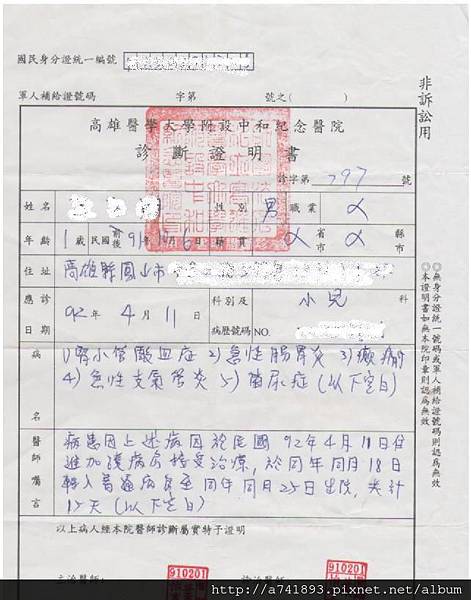 國民身分證統一編號
軍人補給證號碼 字第 號之( )
非訴訟用
高雄醫學大學附設中和紀念醫院
診斷證明書
診字第 797 號
姓名 性別 男 職業 X
年齡 1歲 民國前後 91年 月6日 籍貫 X 省市 X 縣市
住址 高雄縣鳳山市
應診日期 92年 4月 11日 科別及病歷號碼 小兒 科
NO.
病名 1)腎小管酸血症 2)急性腸胃炎 3)癲癇
4)急性支氣管炎 5)糖尿症(以下空白)
醫師囑言 病患因上述病因於民國 92年4月11日住
進加護病房接受治療,於同年同月18日
轉入普通病房至同年同月25日出院,共計
15天(以下空白)
以上病人經本院醫師診斷屬實特予證明
◎無身分證統一號碼或軍人補給證號碼則認為無效
◎本證明書如無本院印章則認為無效
910201
910201
主治醫師:
診治醫師:
http://a741893.pixnet.net/album